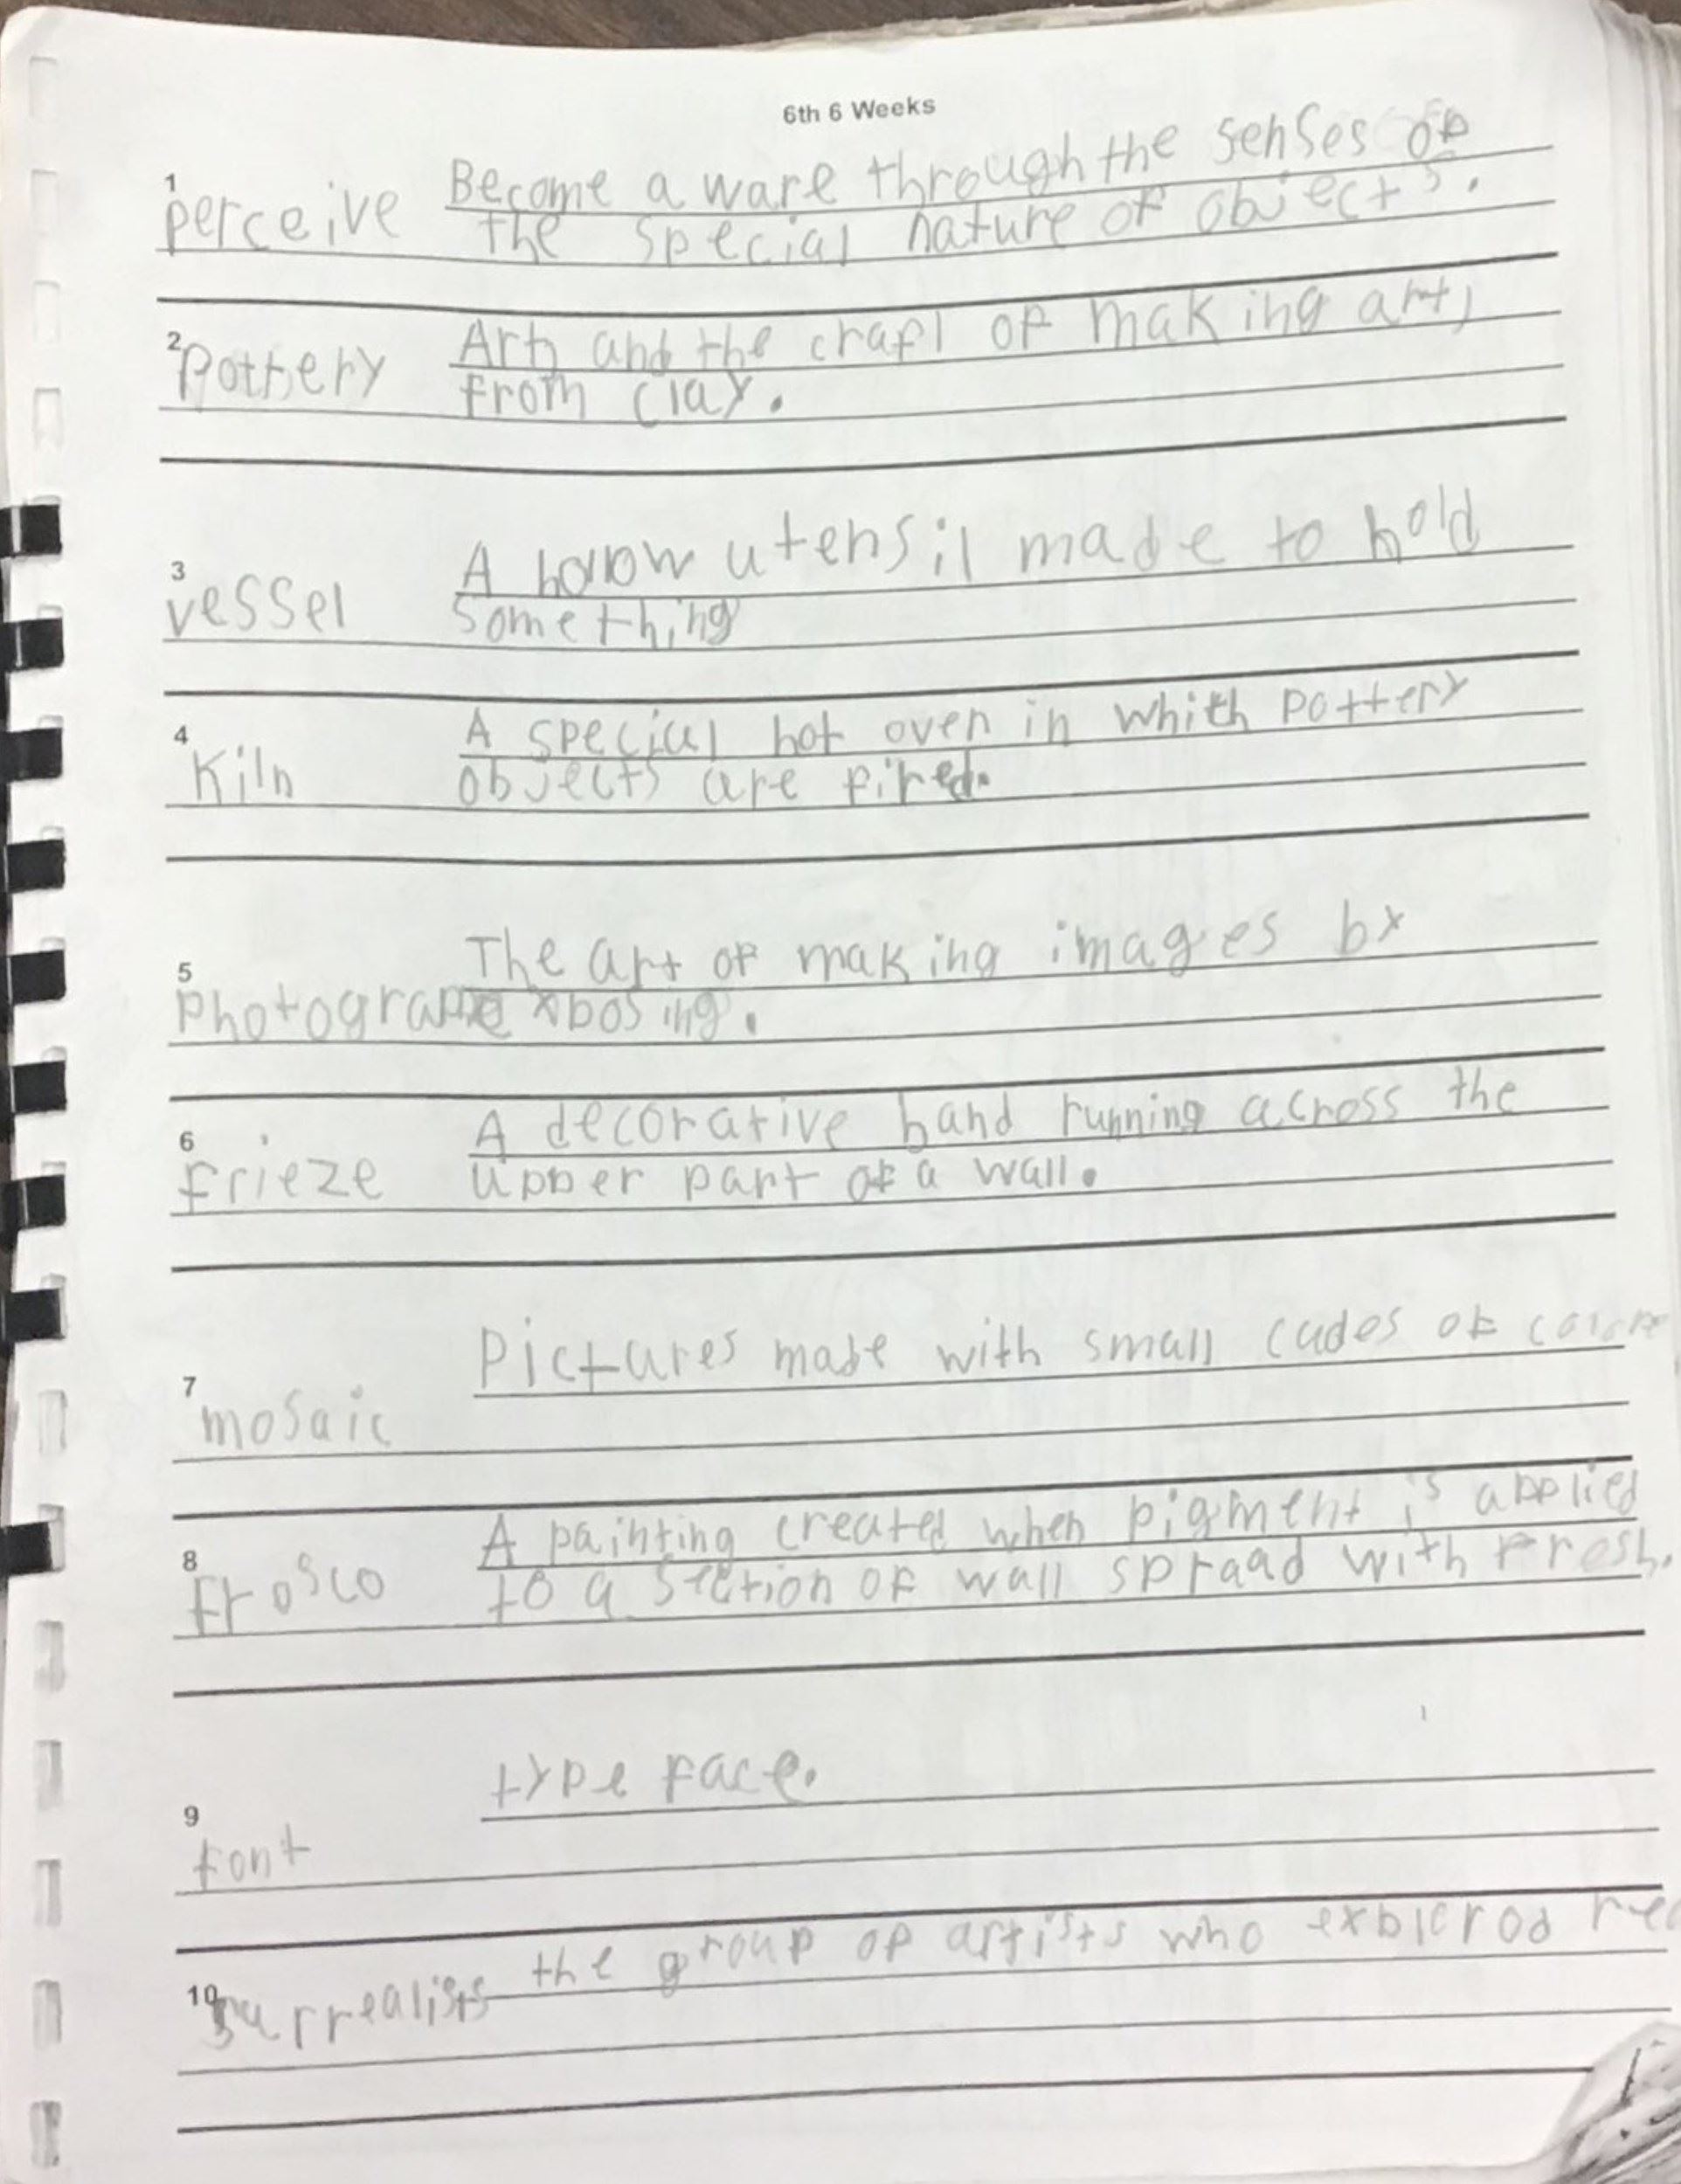 6th 6 Weeks
1
perceive Become a ware through the senses of
the special nature of objects.
2
Pottery Art and the craft of making art,
from clay.
3
vessel A hollow utensil made to hold
something
4
Kiln A special hot oven in whith pottery
objects are fired.
5
The art of making images by
photograph exbosing.
6
frieze A decorative band running across the
upper part of a wall.
7
mosaic Pictures made with small cudes of
8
Frosco A painting created when pigment is applied
to a section of wall spraad with fresh.
9
font type face.
10
surrealists the group of artists who exblorod